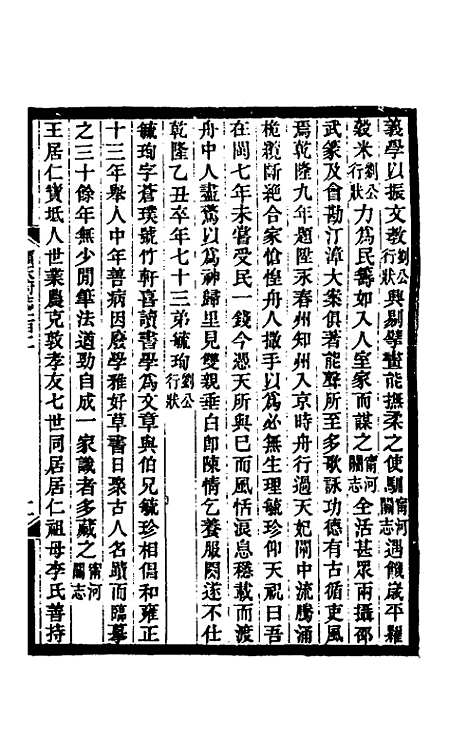 義學以振文敎劉公行狀興剔擘畫能撫柔之使馴甯河關志遇饑歲平糶
穀米劉公行狀力爲民籌如入人室家而謀之甯河關志全活甚眾兩攝邵
武篆及會勘汀漳大案俱著能聲所至多歌詠功德有古循吏風
焉乾隆九年題陞永春州知州入京時舟行過天妃閘中流騰涌
桅纜斷絕合家愴惶舟人撒手以爲必無生理毓珍仰天祝曰吾
在閩七年未嘗受民一錢今憑天所與已而風恬浪息穩載而渡
舟中人盡驚以爲神歸里見雙親垂白卽陳情乞養服闋遂不仕
乾隆乙丑卒年七十三弟毓珣劉公行狀
毓珣字蒼璞號竹軒喜讀書學爲文章與伯兄毓珍相倡和雍正
十三年舉人中年善病因廢學雅好草書日聚古人名蹟而臨摹
之三十餘年無少閒筆法遒勁自成一家識者多藏之甯河關志
王居仁寶坻人世業農克敦孝友七世同居居仁祖母李氏善持